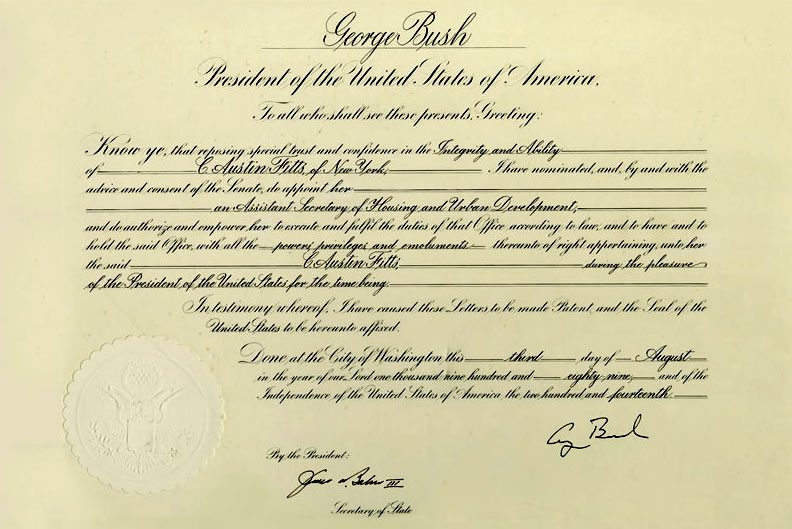 George Bush
President of the United States of America.
To all who shall see these presents, Greeting:
Know ye, that reposing special trust and confidence in the Integrity and Ability
of C. Austin Fitts, of New York, I have nominated, and, by and with the
advice and consent of the Senate, do appoint her
an Assistant Secretary of Housing and Urban Development,
and do authorize and empower her to execute and fulfil the duties of that Office according to law, and to have and to
hold the said Office, with all the powers, privileges, and emoluments thereunto of right appertaining, unto her
the said C. Austin Fitts, during the pleasure
of the President of the United States for the time being.
In testimony whereof, I have caused these Letters to be made Patent, and the Seal of the
United States to be hereunto affixed.
Done at the City of Washington this third day of August
in the year of our Lord one thousand nine hundred and eighty-nine, and of the
Independence of the United States of America the two hundred and fourteenth
G Bush
By the President:
James A. Baker III
Secretary of State